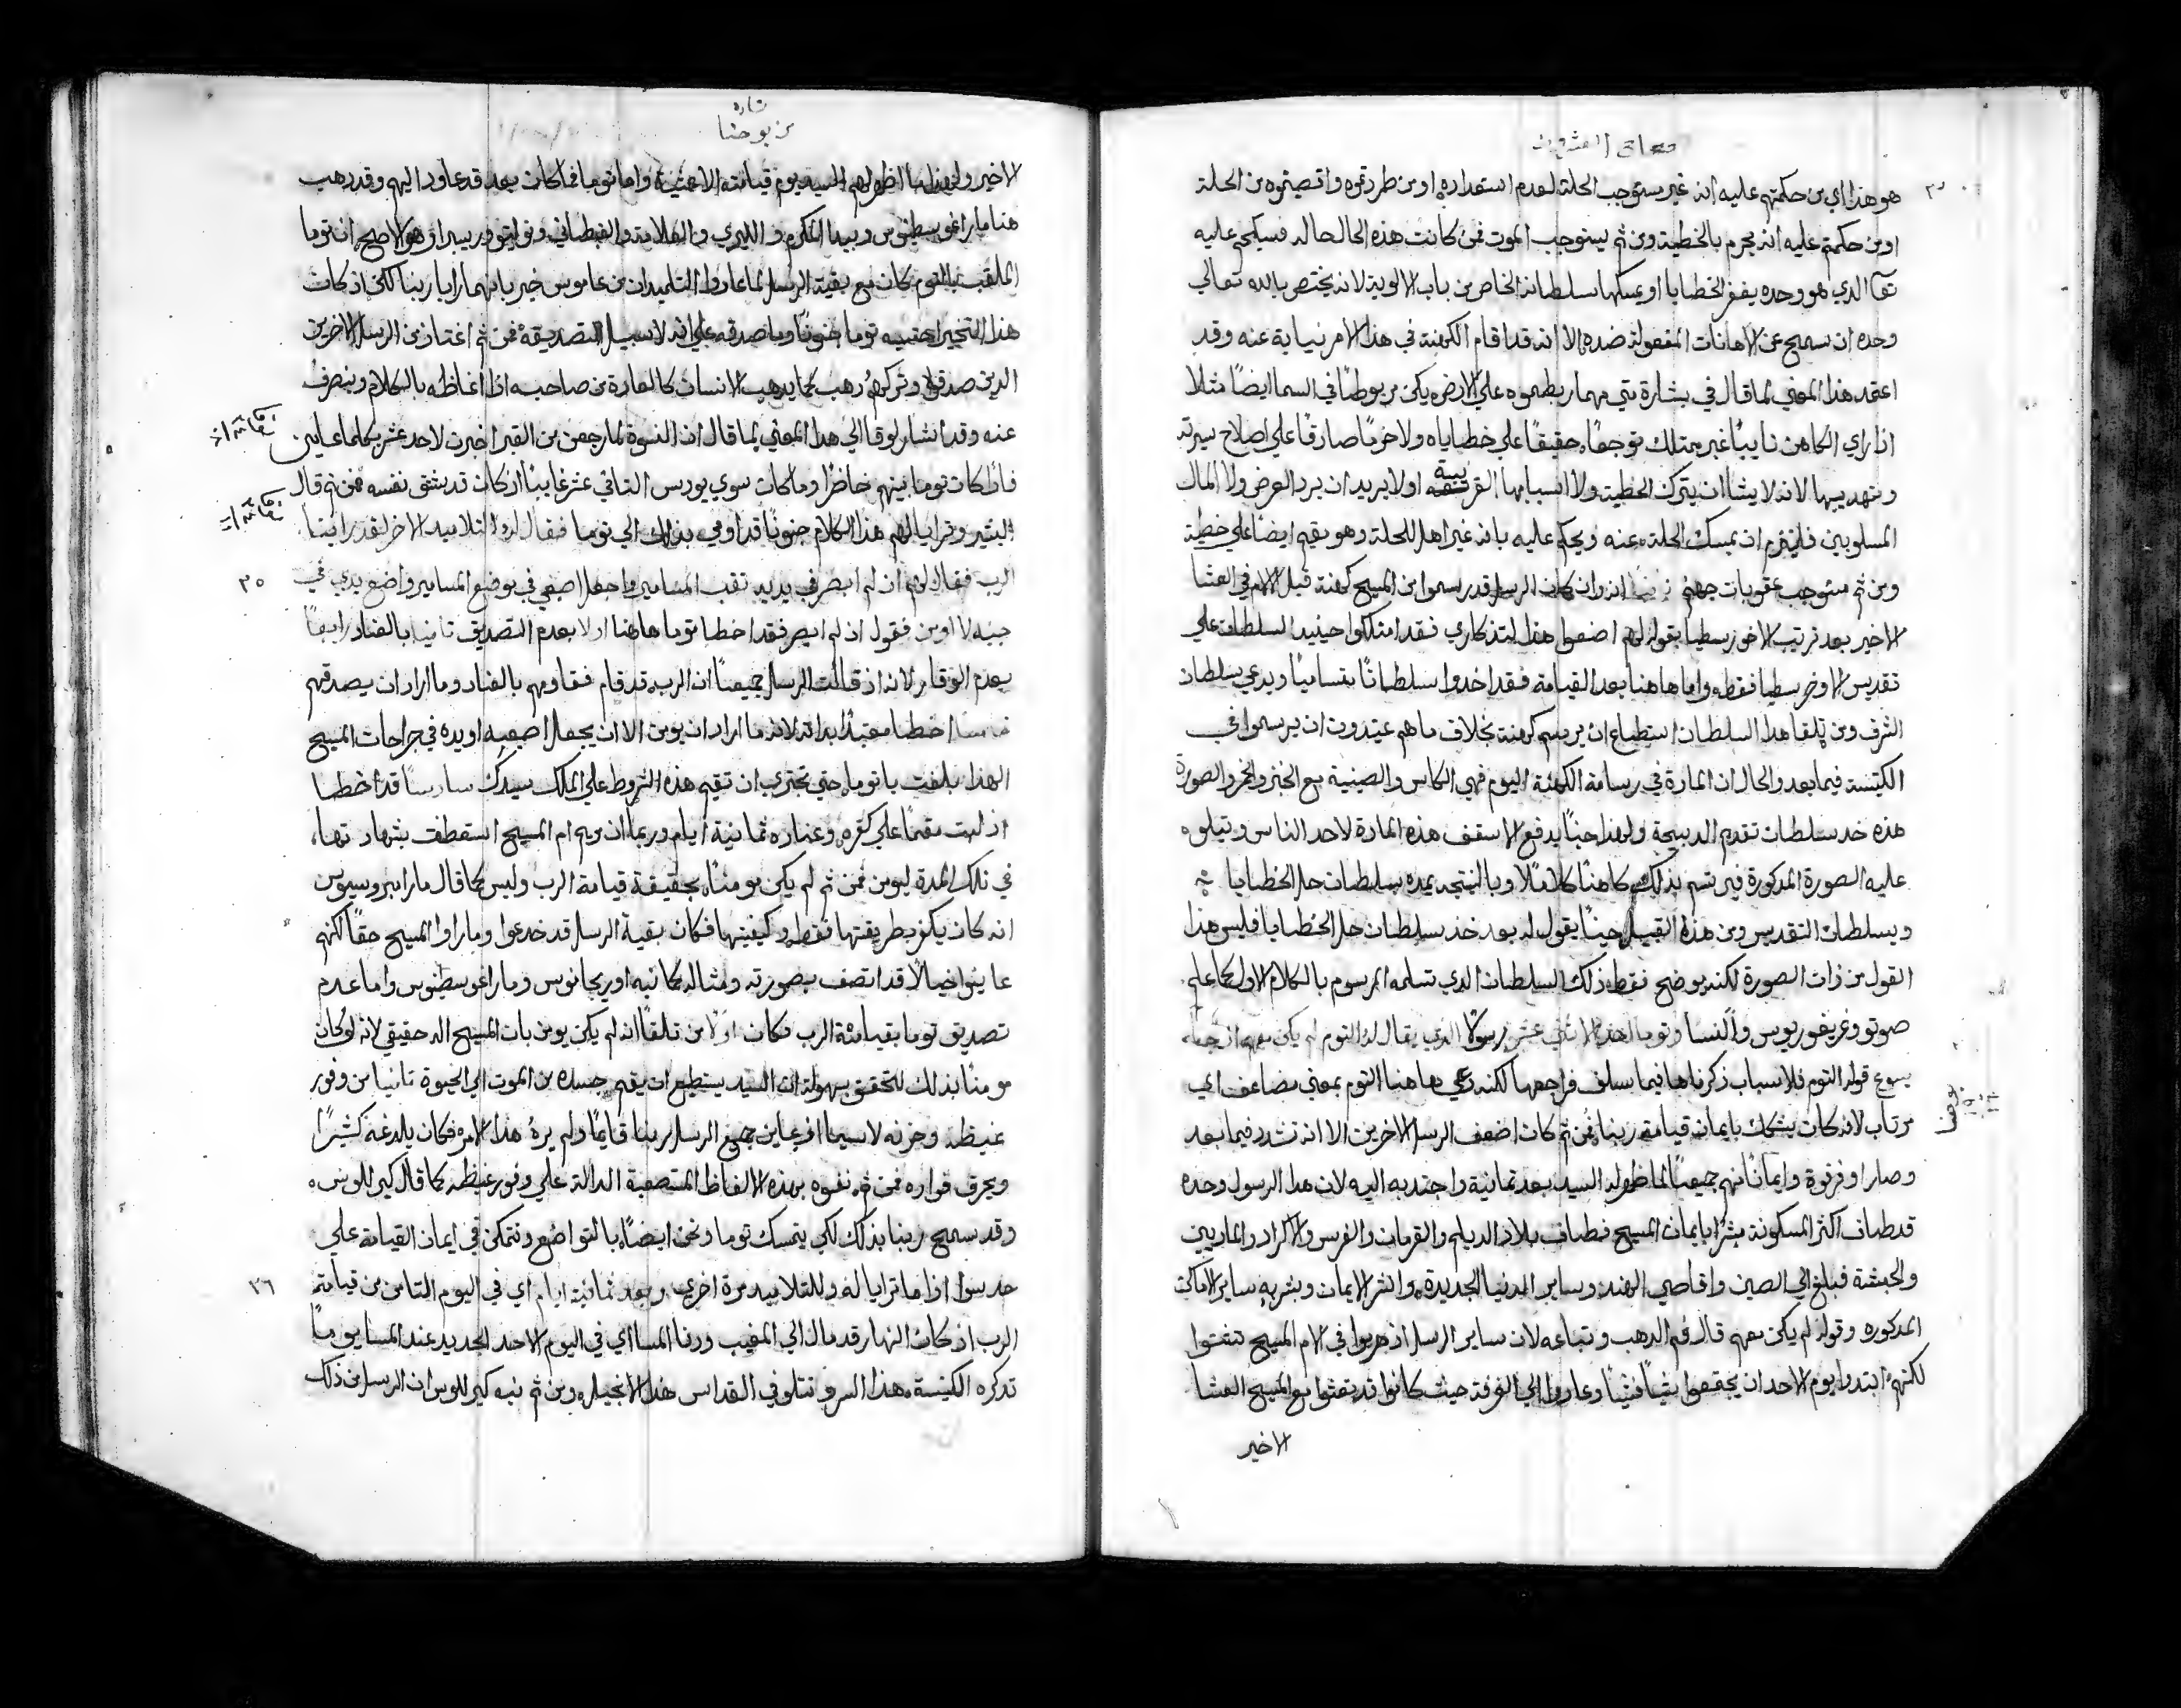 هو هذا اي من حكمتم عليه انه غير مستوجب الحلة لعدم استعداده او من طردتموه واقصيتموه من الحلة
او من حكمتم عليه انه مجرم بالخطية ومن ثم يستوجب الموت فمن كانت هذه الحال حاله فسيحكم عليه
الذي هو وحده يغفر الخطايا او يمسكها سلطانه الخاص من باب الالوهية لانه يختص بالله تعالي
وحده ان يسمح عن الاهانات المفعولة ضده الا انه قد اقام الكهنة في هذا الامر نيابة عنه وقد
اعتمد هذا المعني لما قال في بشارة متي مهما ربطموه علي الارض يكن مربوطًا في السما ايضًا مثلا
اذا راي الكاهن تايبًا غير ممتلك توجعًا حقيقًا علي خطاياه ولا حزمًا صادقًا علي اصلاح سيرته
وتهديبها لانه لا يشا ان يترك الخطية ولا اسبابها القريبة او لا يريد ان يرد العرض ولا المال
المسلوبين فليلزم ان يمسك الحلة عنه ويحكم عليه بانه غير اهل للحلة وهو مقيم ايضًا علي خطية
ومن ثم مستوجب عقوبات جهنم انه وان كان الرسل قد رسموا من المسيح كهنة قبل الامه في العشا
الاخير بعد ترتيب الاخورسطيا بقوله لهم اصنعوا هذا لتذكاري فقد امتلكوا حينيد السلطان علي
تقديس الاوخرسطيا فقط واما هاهنا بعد القيامة فقد اخدوا سلطانًا ويدعي سلطان
الشرف ومن تلقا هذا السلطان استطاع ان يرسم كهنة بخلاف ما هم عتيدون ان يرسموا في
الكنيسة فيما بعد والحال ان المادة في رسامة الكهنة اليوم فهي الكاس والصينية مع الخبز والخمر والصورة
هذه خد سلطان تقدم الدبيحة ولهذا حينًا يدفع الاسقف هذه المادة لاحد الناس ويتلو
عليه الصورة المدكورة فيرتسم بذلك كاهنًا كاملًا وبالنتيجه يمده بسلطان حل الخطايا
وبسلطان التقديس ومن هذا القبيل حينًا يقول له بعد خد سلطان حل الخطايا فليس هذا
القول من ذات الصورة لكنه يوضح فقط ذلك السلطان الدي تسلمه المرسوم بالكلام الاول كما علم
صوتو وغريغوريوس وألنسا وتوما احد الاثني عشر رسولا الذي يقال له التوم لم يكن معهم اذ جا
يسوع قوله التوم فلاسباب ذكرناها فيما سلف فراجعها لكنه دعي هاهنا التوم بمعني مضاعف اي
مرتاب لانه كان يشكك بايمان قيامة ربنا فمن ثم كان اضعف الرسل الاخرين الا انه تشدد فيما بعد
وصار اوفر قوة وايمانًا منهم جميعًا لما ظهر له السيد بعد تمانية واجتدبه اليه لان هدا الرسول وحده
قد طاف اكثر المسكونة مبشرًا بايمان المسيح فطاف بلاد الديلم والقرمان والفرس والاكراد والماديين
والحبشة فبلغ الي الصين واقاصي الهند وساير الدنيا الجديدة وانشر الايمان وبشر به ساير الاماكن
المدكوره وقوله لم يكن معهم قال فم الدهب وتباعه لان ساير الرسل اذ هربوا في الام المسيح تشتتوا
لكنهم ابتدوا يوم الاحد ان يجتمعوا شيًا فشيًا وعادوا الي الغرفة حيث كانوا قد تعشوا مع المسيح العشا
الاخير
يوحنا
بشارة
من يوحنا
الاخير ولهذا لما ظهر لهم السيد يوم قيامته الا عشية واما توما فما كان بعد قد عاود اليهم وقد دهب
هنا مار اغوسطينوس وبيدا المكرم والليري والعلامة والقبطاني وتوليتو وريبيرا وهو الاصح ان توما
الملقب بالتوم كان مع بقية الرسل لما عادوا التلميدان من عاموس خبر بانهما رايا ربنا لكن اذ كان
هذا التخبير احتسبه توما جنونًا وما صدقه علي انه لا سبيل لتصديقه فمن ثم اغتاظ من الرسل الاخرين
الدين صدقوا وتركهم ودهب كما يدهب الانسان كالعادة من صاحبه اذا اغاظه بالكلام وينصرف
عنه وقد اشار لوقا الي هذا المعني لما قال ان النسوة لما رجعن من القبر اخبرن لاحد عشر بكلما عاين
فاذًا كان توما بينهم حاضرًا وما كان سوي يودس التاني عشر غايبًا اذ كان قد شنق نفسه فمن ثم قال
البشير وترايا لهم هذا الكلام جنونًا قد اومي بذلك الي توما فقال له التلاميد الاخر لقد راينا
الرب فقال لهم ان لم ابصر في يديه تقب المسامير واجعل اصبعي في موضع المسامير واضع يدي في
جنبه لا اومن فقول اذ لم ابصر فقد اخطا توما هاهنا اولا بعدم التصديق تانيا بالعناد رابعًا
بعدم الوقار لانه اذ قالت الرسل جميعًا ان الرب قد قام فقاومهم بالعناد وما اراد ان يصدقهم
خامسًا اخطا معتدًا بداته لانه ما اراد ان يومن الا ان يجعل اصبعه او يده في جراحات المسيح
الهذا بلغت يا توما حتي تجتري ان تقيم هذه الشروط علي الملك سيدك سادسًا قد اخطا
اذ لبت مقيمًا علي كفره وعناده ثمانية ايام وربما ان مريم ام المسيح استعطفت بشهادتها
في تلك المدة ليومن فمن ثم لم يكن مومنًا بحقيقة قيامة الرب وليس كما قال مار امبروسيوس
انه كان يكفر بطريقتها فقط وكيفيتها فكان بقية الرسل قد خدعوا وما راوا المسيح حقًا لكنهم
عاينوا خيالًا قد اتصف بصورته ومثاله كما نبه اوريجانوس ومار اغوسطينوس واما عدم
تصديق توما بقيامة الرب فكان اولًا من تلقا انه لم يكن يومن بان المسيح اله حقيقي لانه لو كان
مومنًا بذلك لتحقق بسهولة ان السيد يستطيع ان يقيم جسده من الموت الي الحيوة تانيا من وفور
غيظه وحزنه لاسيما اذ عاين جميع الرسل ربنا قايمًا ولم يره هذا الامر فكان يلدغه كثيرًا
ويحرق فواده فمن ثم تفوه بهذه الالفاظ المستصعبة الدالة علي وفور غيظه كما قال كيرللوس
وقد سمح ربنا بذلك لكي يتمسك توما ونحن ايضًا بالتواضع ونتمكن في ايمان القيامة علي
حد سوا اذا ما ترايا له وللتلاميد مرة اخري وبعد ثمانية ايام اي في اليوم التامن من قيامة
الرب اذ كان النهار قد مال الي المغيب ودنا المسا اي في اليوم الاحد الجديد عند المسا يومًا
تدكره الكنيسة هذا السر وتتلو في القداس هذا الانجيل ومن ثم نبه كيرللوس ان الرسل من ذلك
٢٥
٢٦